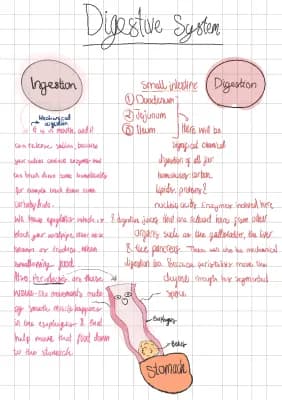 Digestive System
Ingestion
Mechanical digestion
it is in mouth, and it
can release saliva, because
your saliva contains enzymes that
can break down some
for example break down some
carbohydrate.
We have epiglottis which
block your windpipe, also
known or trachea, when
swallowing food.
Also, Peristalsis are these
wave-like movements made
by smooth muscle happens
in the esophagus & that
help move that food down
to the stomach.
Small intestine
① Duodenum
② Jejunum
③ Ileum
Digestion
Here will be
chemical
digestion of all four
carbon
lipids, proteins &
nucleic acids. Enzymes involved here
& digestive juices that are released here from other
organs such as the gallbladder, the liver
& the pancreas. There will also be mechanical
digestion too. Because peristalsis move the
through her segmented
Esophagus
Bolus
Stomach